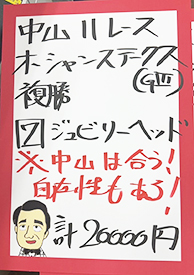 中山11レース
オーシャンステークス
(GⅢ)
複勝
7 ジュビリーヘッド
※中山は合う!
自在性もある!
計20000円